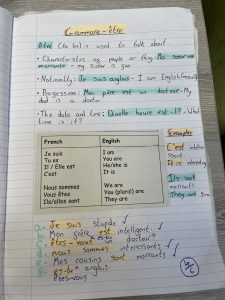 Grammaire - être
être (to be) is used to talk about
• Characteristics eg. people or things Ma sœur est
marrante - my sister is fun
• Nationality: Je suis anglais - I am English
• Profession: Mon père est un docteur - My
dad is a doctor
• The date and time: Quelle heure est-il? - What
time is it?
French English
Je suis I am
Tu es You are
Il / Elle est He/she is
C'est It is
Nous sommes We are
Vous êtes You (plural) are
Ils/elles sont They are
Examples
C'est
It is
Ils sont
marrants
They are
Je suis stupide
Mon frère est intelligent.
êtes-vous docteur?
nous sommes interessants
Mes cousins sont marrants.
es-tu anglais.
êtes-vous
4/6